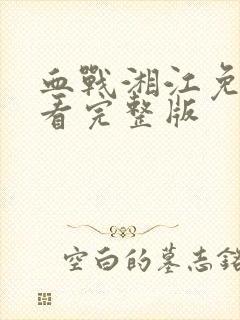 血戰·湘江免
看完整版
空白的墓志銘